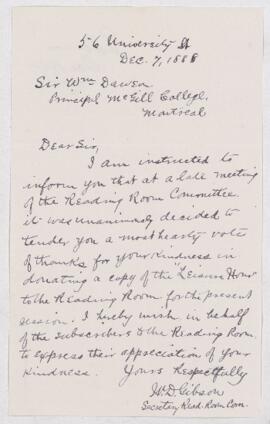 56 University St
Dec. 7, 1888
Sir Wm Dawson
Principal McGill College.
Montreal
Dear Sir,
I am instructed to
inform you that at a late meeting
of the Reading Room Committee
it was unanimously decided to
tender you a most hearty vote
of thanks for your kindness in
donating a copy of the "Leisure Hour"
to the Reading Room for the present
session. I hereby wish in behalf
of the subscribers to the Reading Room
to express their appreciation of your
kindness. Yours Respectfully
W. D. Gibson
Secretary Read. Room Com.